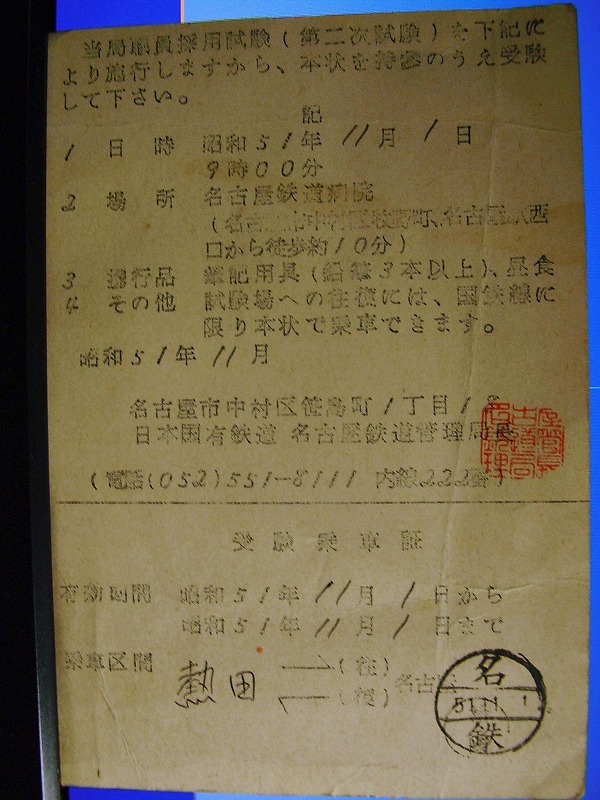 当局職員採用試験(第二次試験)を下記に
より施行しますから、本状を持参のうえ受験
して下さい。
記
1 日時 昭和51年 11月 1日
9時00分
2 場所 名古屋鉄道病院
(名古屋市中村区牧野町、名古屋駅西
口から徒歩約10分)
3 携行品 筆記用具(鉛筆3本以上)、昼食
4 その他 試験場への往復には、国鉄線に
限り本状で乗車できます。
昭和51年 11月
名古屋市中村区笹島町1丁目1番
日本国有鉄道 名古屋鉄道管理局長
(電話(052)551-8111 内線222番)
受験乗車証
有効期間 昭和51年 11月 1日から
昭和51年 11月 1日まで
乗車区間 熱田 (往) (復) 名古屋
名
51.11.1
鉄